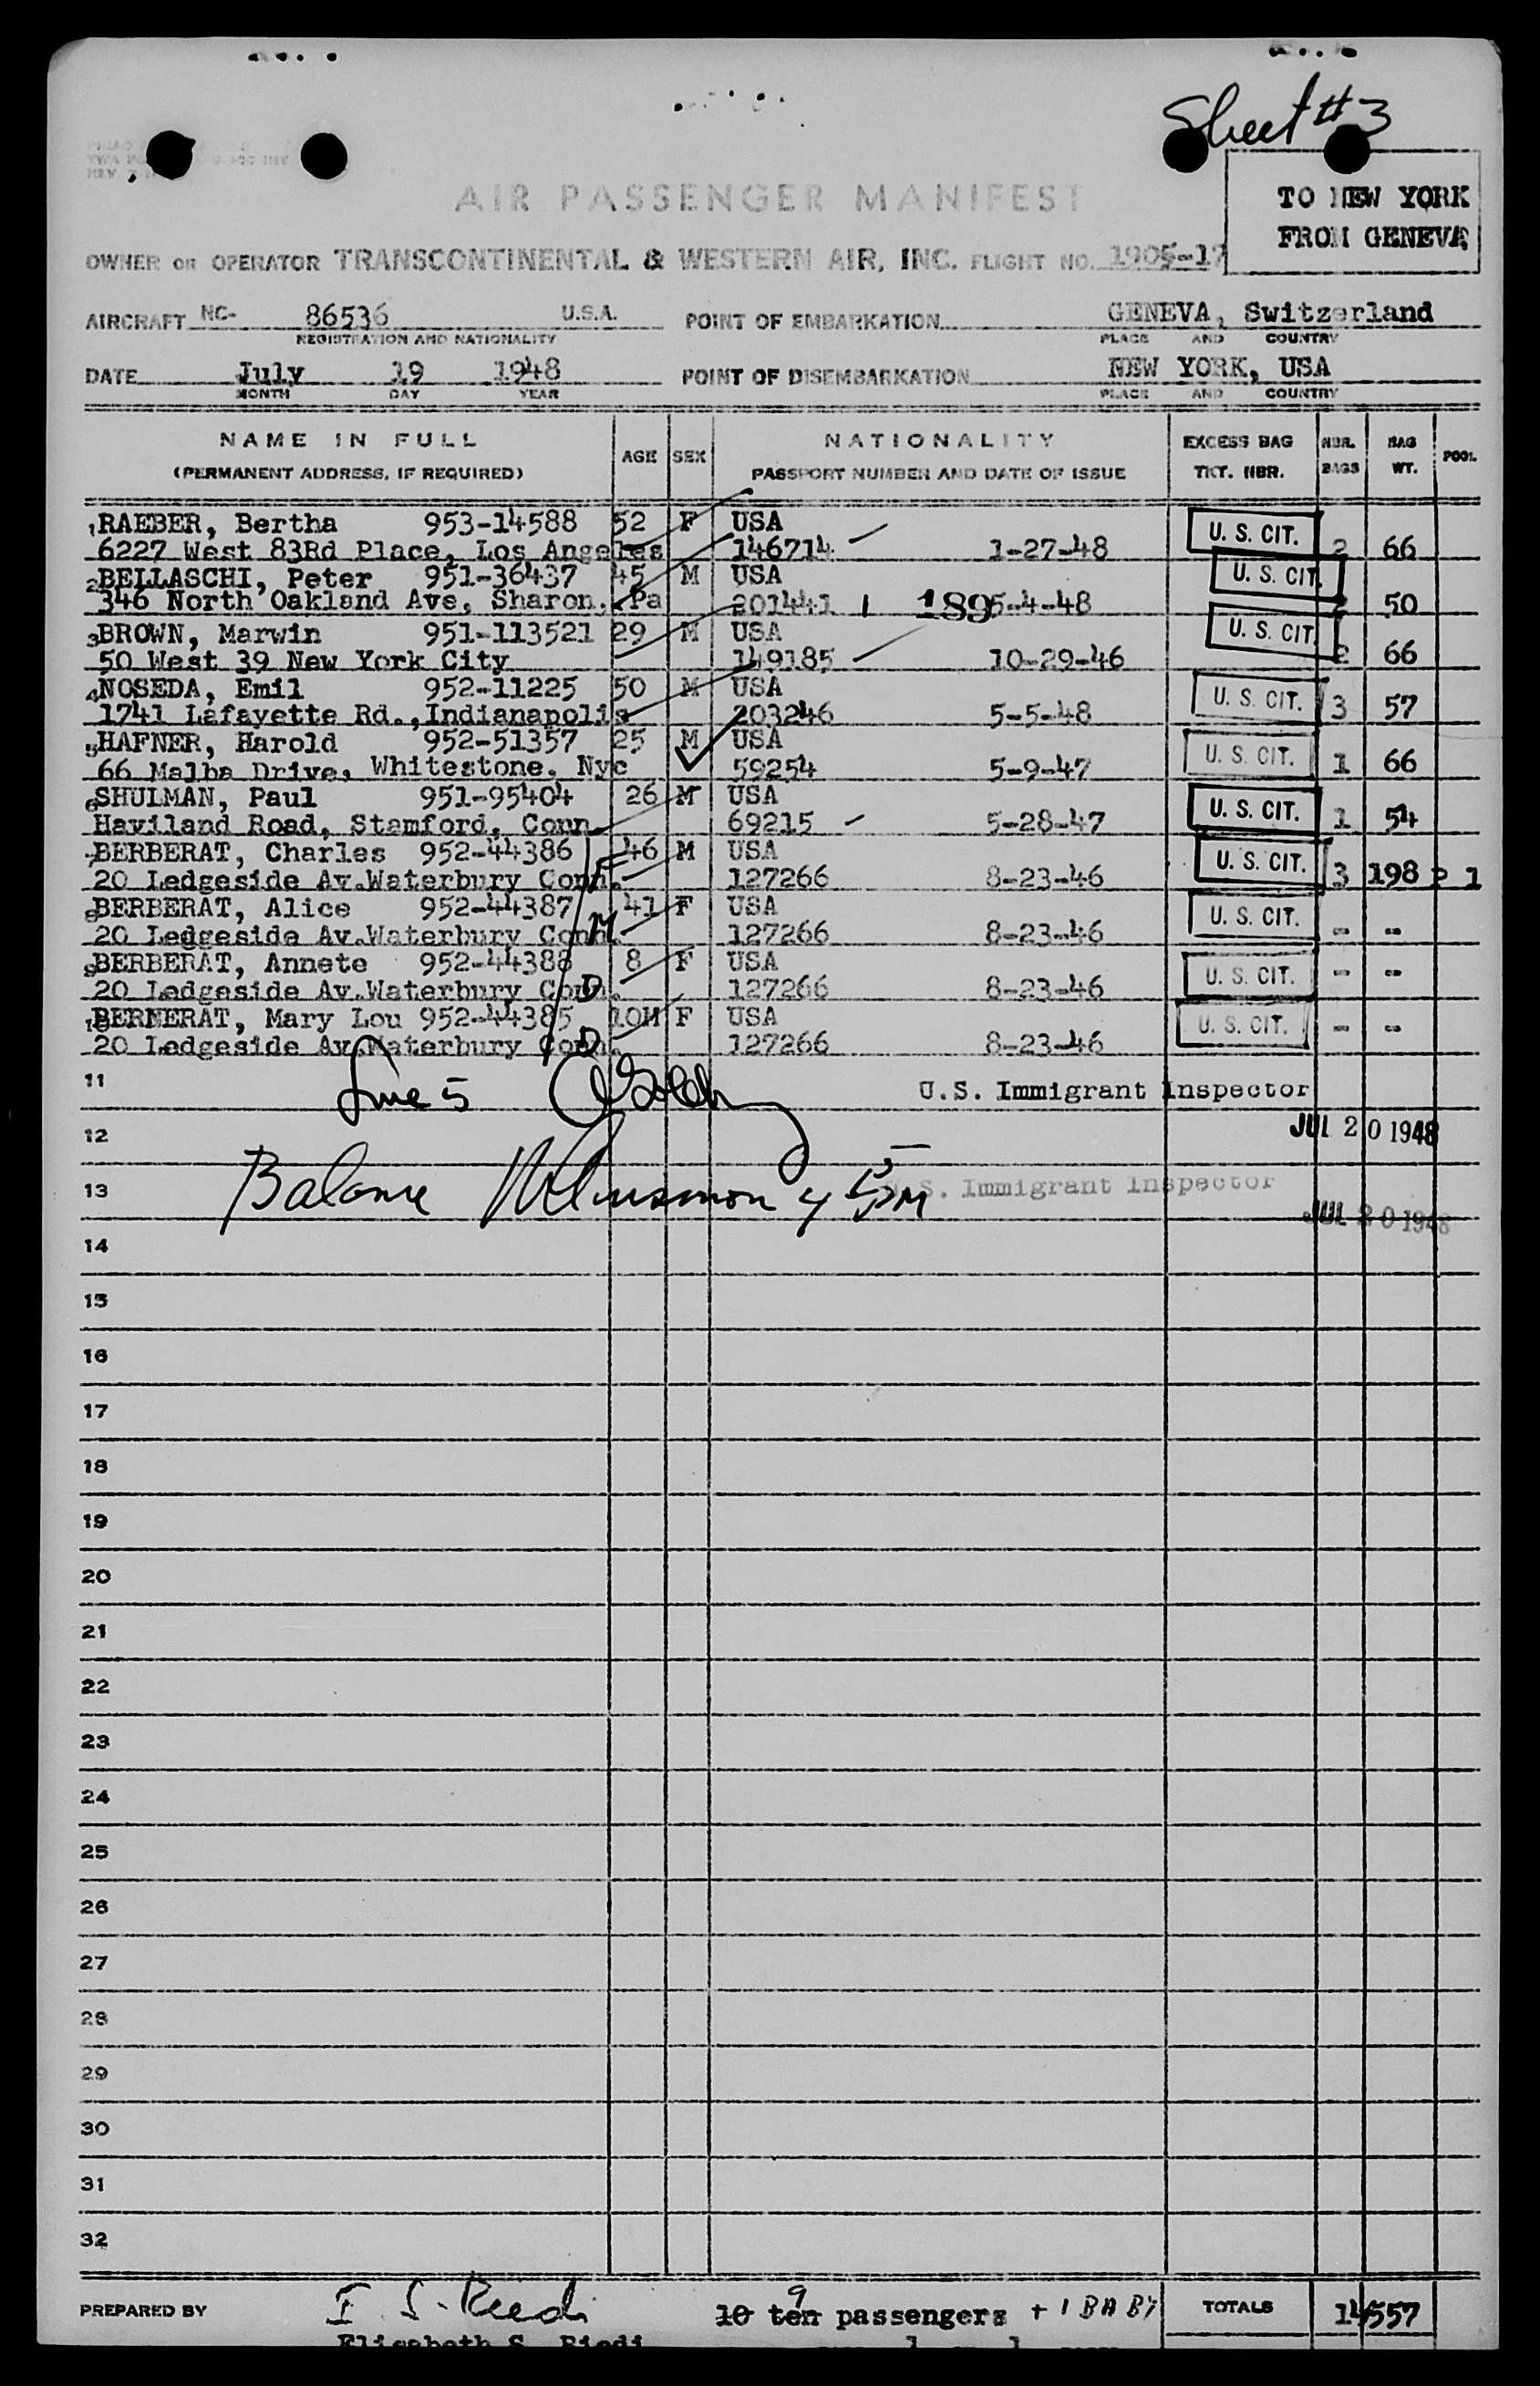 Sheet #3
AIR PASSENGER MANIFEST
TO NEW YORK
FROM GENEVA
OWNER OR OPERATOR TRANSCONTINENTAL & WESTERN AIR, INC. FLIGHT NO. 1905-17
AIRCRAFT NC- 86536 U.S.A. POINT OF EMBARKATION GENEVA, Switzerland
REGISTRATION AND NATIONALITY PLACE AND COUNTRY
DATE July 19 1948 POINT OF DISEMBARKATION NEW YORK, USA
MONTH DAY YEAR PLACE AND COUNTRY
NAME IN FULL AGE SEX NATIONALITY EXCESS BAG NBR. BAG POOL
(PERMANENT ADDRESS, IF REQUIRED) PASSPORT NUMBER AND DATE OF ISSUE TKT. NBR. BAGS WT.
1 RAEBER, Bertha 953-14588 52 F USA U. S. CIT.
6227 West 83Rd Place, Los Angeles 146714 1-27-48 2 66
2 BELLASCHI, Peter 951-36437 45 M USA U. S. CIT.
346 North Oakland Ave, Sharon, Pa 201441 1 189 5-4-48 2 50
3 BROWN, Marwin 951-113521 29 M USA U. S. CIT.
50 West 39 New York City 149185 10-29-46 2 66
4 NOSEDA, Emil 952-11225 50 M USA U. S. CIT.
1741 Lafayette Rd., Indianapolis 203246 5-5-48 3 57
5 HAFNER, Harold 952-51357 25 M USA U. S. CIT.
66 Malba Drive, Whitestone, Nyc 59254 5-9-47 1 66
6 SHULMAN, Paul 951-95404 26 M USA U. S. CIT.
Haviland Road, Stamford, Conn 69215 5-28-47 1 54
7 BERBERAT, Charles 952-44386 46 M USA U. S. CIT.
20 Ledgeside Av.Waterbury Conn. F 127266 8-23-46 3 198 P 1
8 BERBERAT, Alice 952-44387 41 F USA U. S. CIT.
20 Ledgeside Av.Waterbury Conn. M 127266 8-23-46 - -
9 BERBERAT, Annete 952-44388 8 F USA U. S. CIT.
20 Ledgeside Av.Waterbury Conn. D 127266 8-23-46 - -
10 BERNERAT, Mary Lou 952-44385 10M F USA U. S. CIT.
20 Ledgeside Av.Waterbury Conn. D 127266 8-23-46 - -
11 Line 5 U.S. Immigrant Inspector
12 JUL 20 1948
13 Balance U.S. Immigrant Inspector
JUL 20 1948
14
15
16
17
18
19
20
21
22
23
24
25
26
27
28
29
30
31
32
PREPARED BY 10 ten 9 passengers + 1 BABY TOTALS 14 557
Elisabeth S. Riedi